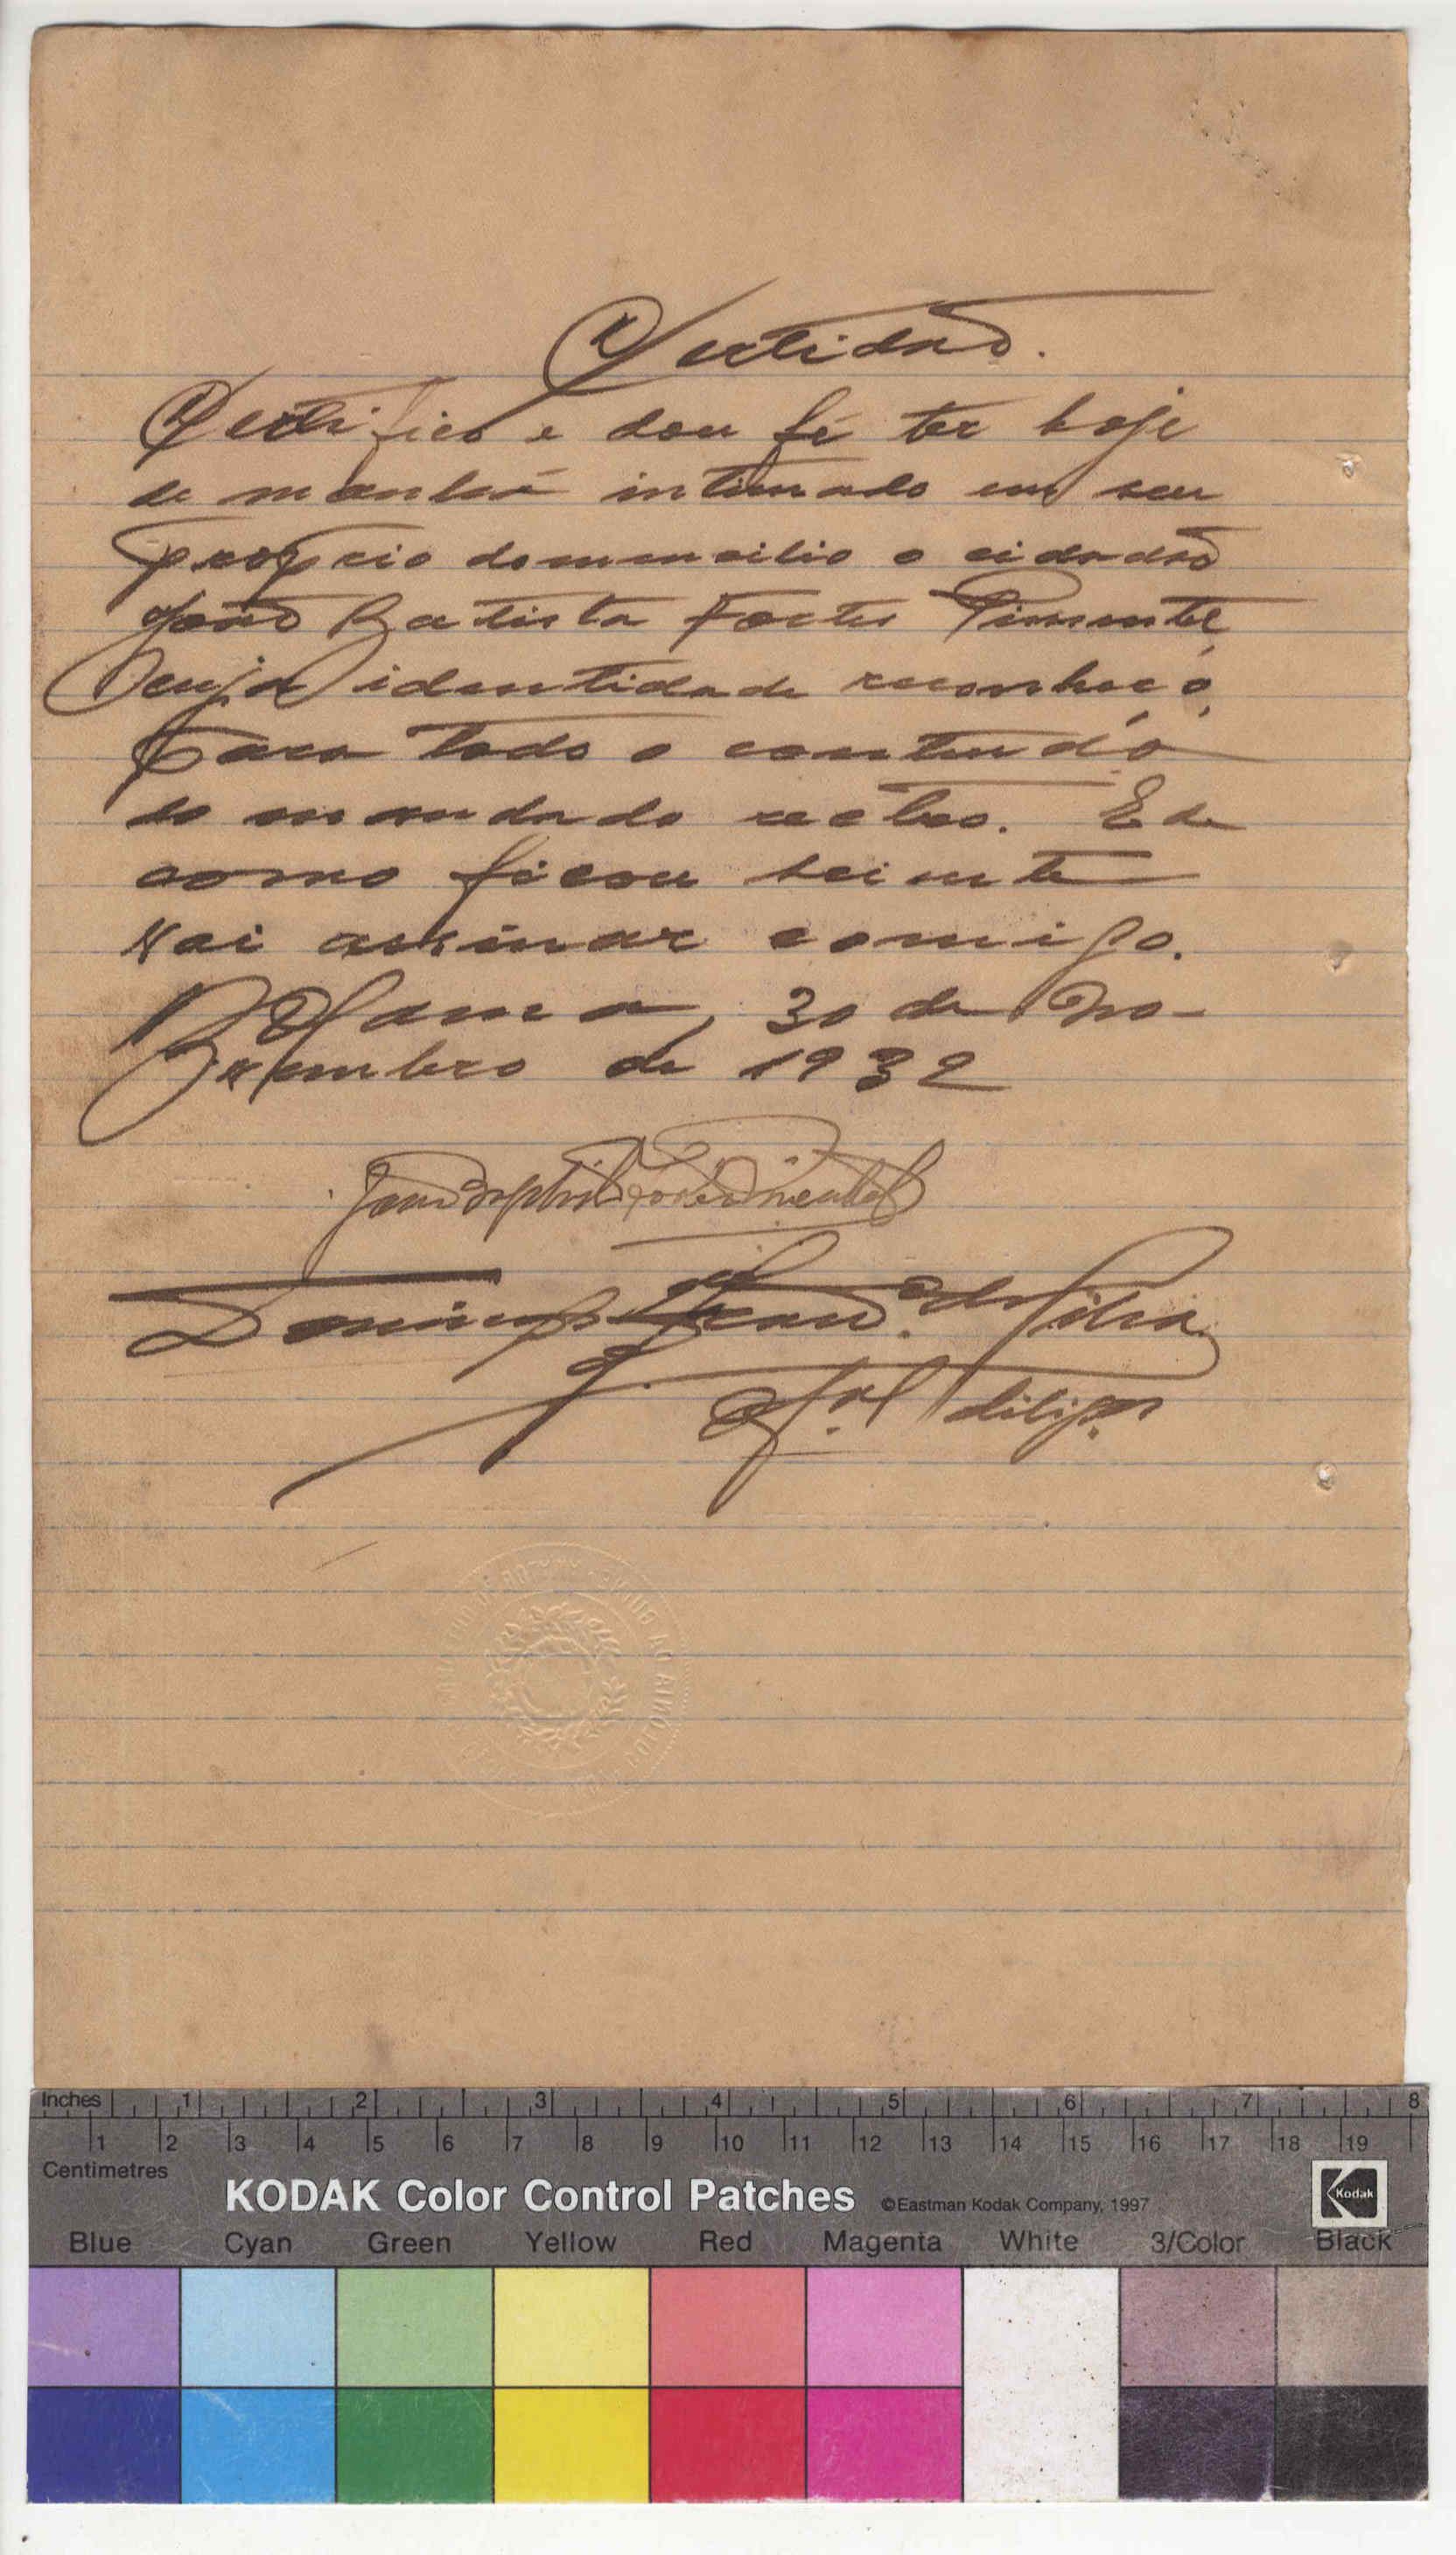 Certidão.
Certifico e dou fé ter hoje
de manhã intimado em seu
proprio dommicilio o cidadão
João Batista Fortes Pimentel,
cuja identidade reconheço,
para todo o conteudo
do mandado retro. E de
como ficou sciente
vai assinar comigo.
Bolama, 30 de No-
vembro de 1932
João Baptista Fortes Pimentel
Domingos da Silva
Of.al dilig.as
COLONIA DA GUINÉ
Inches 1 2 3 4 5 6 7 8
1 2 3 4 5 6 7 8 9 10 11 12 13 14 15 16 17 18 19
Centimetres
KODAK Color Control Patches ©Eastman Kodak Company, 1997 Kodak
Blue Cyan Green Yellow Red Magenta White 3/Color Black